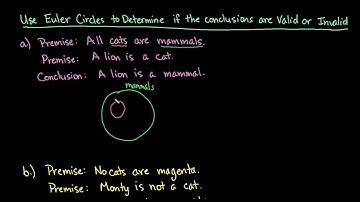 Use Euler Circles to Determine if the conclusions are Valid or Invalid
a) Premise: All cats are mammals.
Premise: A lion is a cat.
Conclusion: A lion is a mammal.
mammals
b.) Premise: No cats are magenta.
Premise: Monty is not a cat.